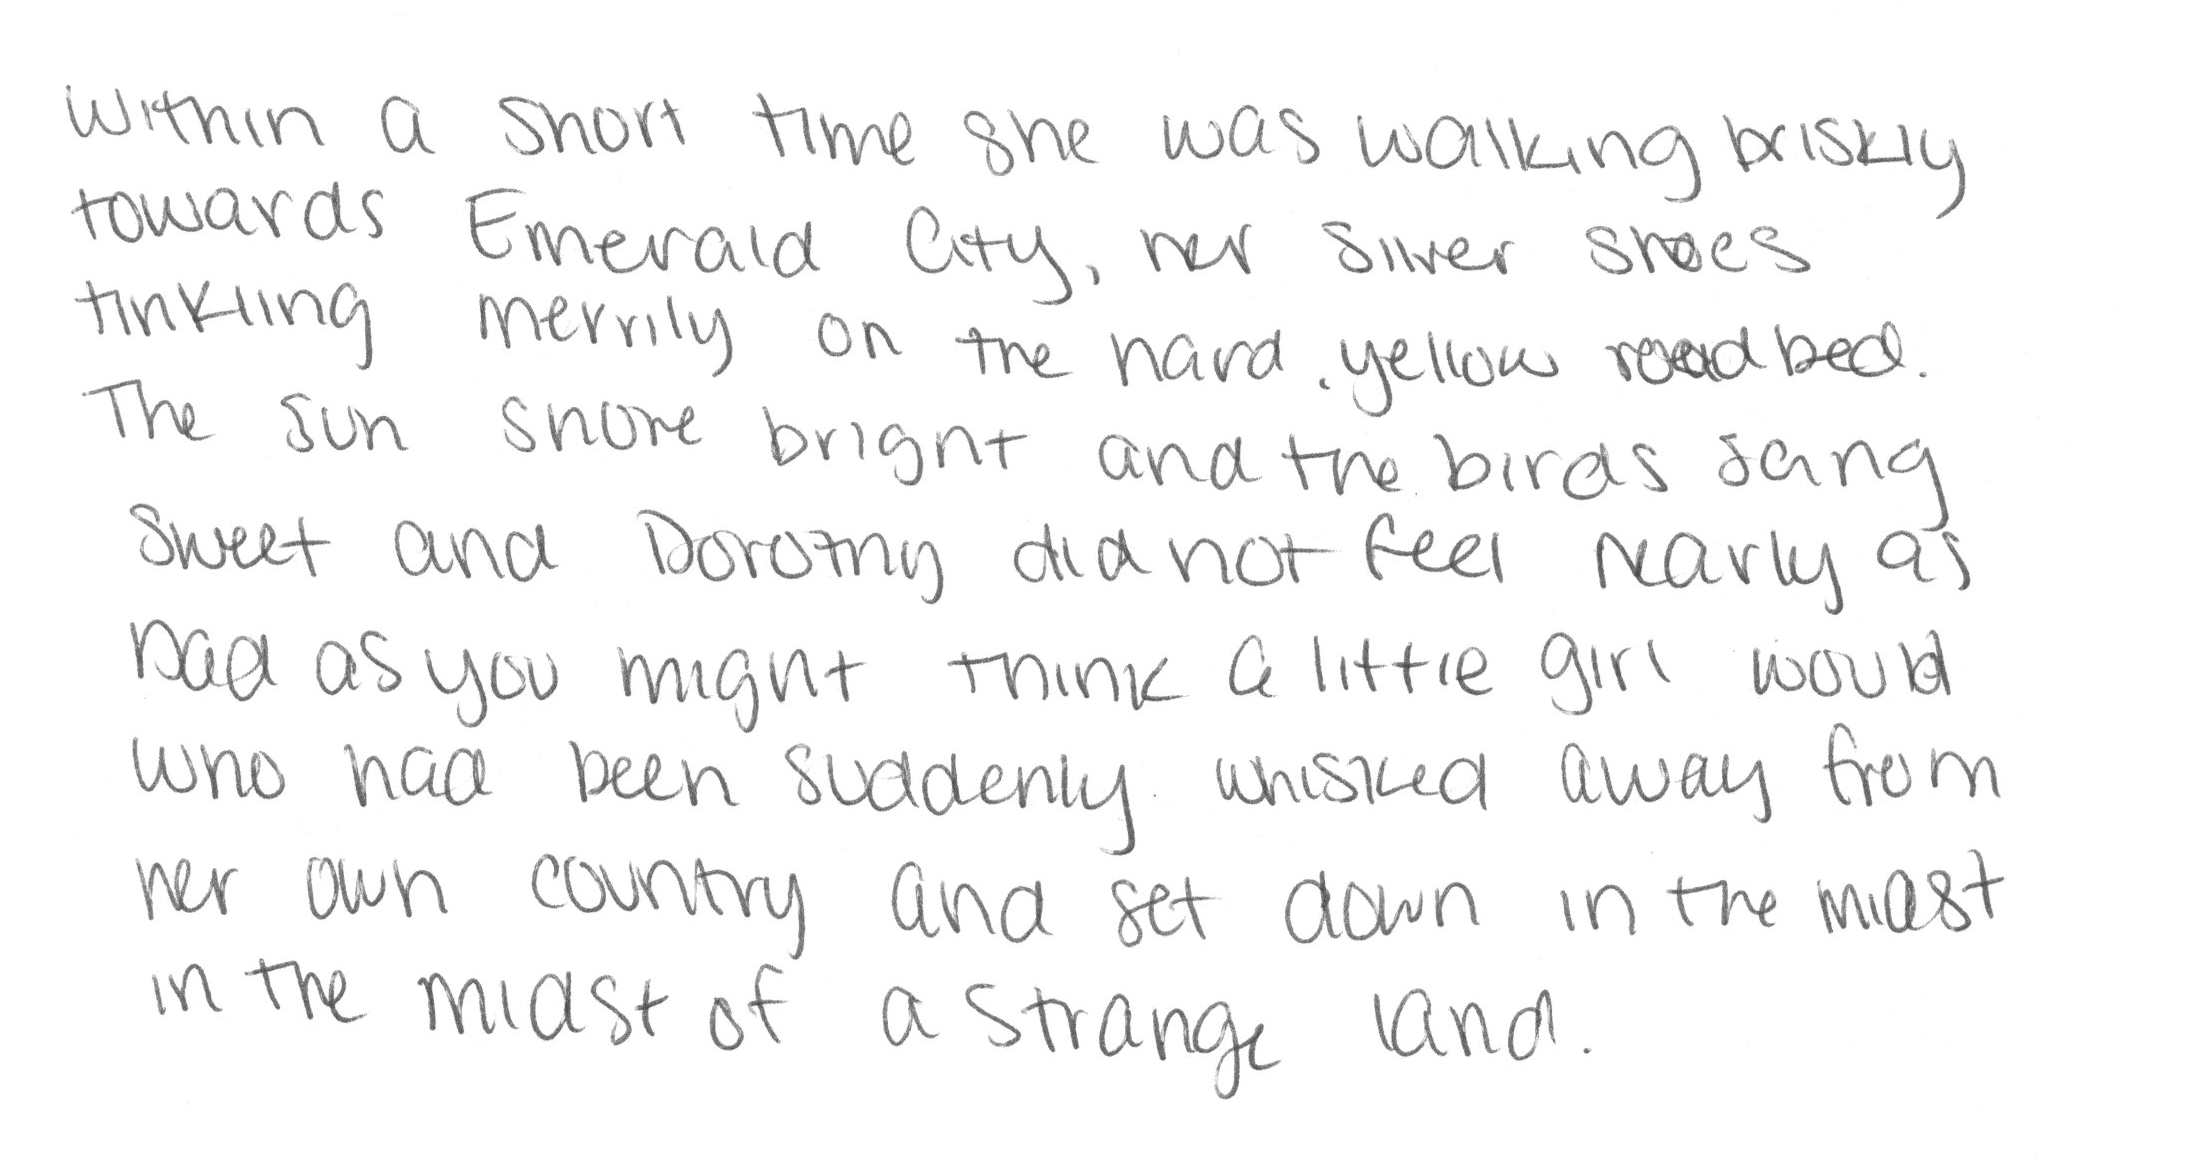 Within a short time she was walking briskly
towards Emerald City, her silver shoes
tinkling merrily on the hard, yellow road bed.
The sun shone bright and the birds sang
sweet and Dorothy did not feel nearly as
bad as you might think a little girl would
who had been suddenly whisked away from
her own country and set down in the midst
in the midst of a strange land.